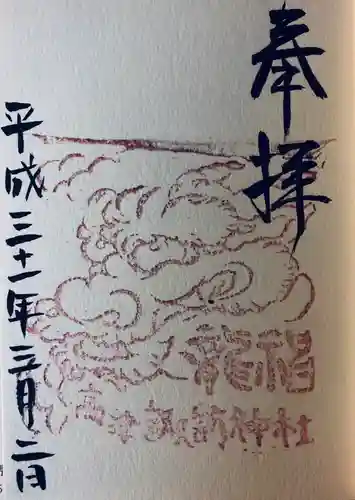 奉拝
龍福
高津諏訪神社
平成三十一年三月二日